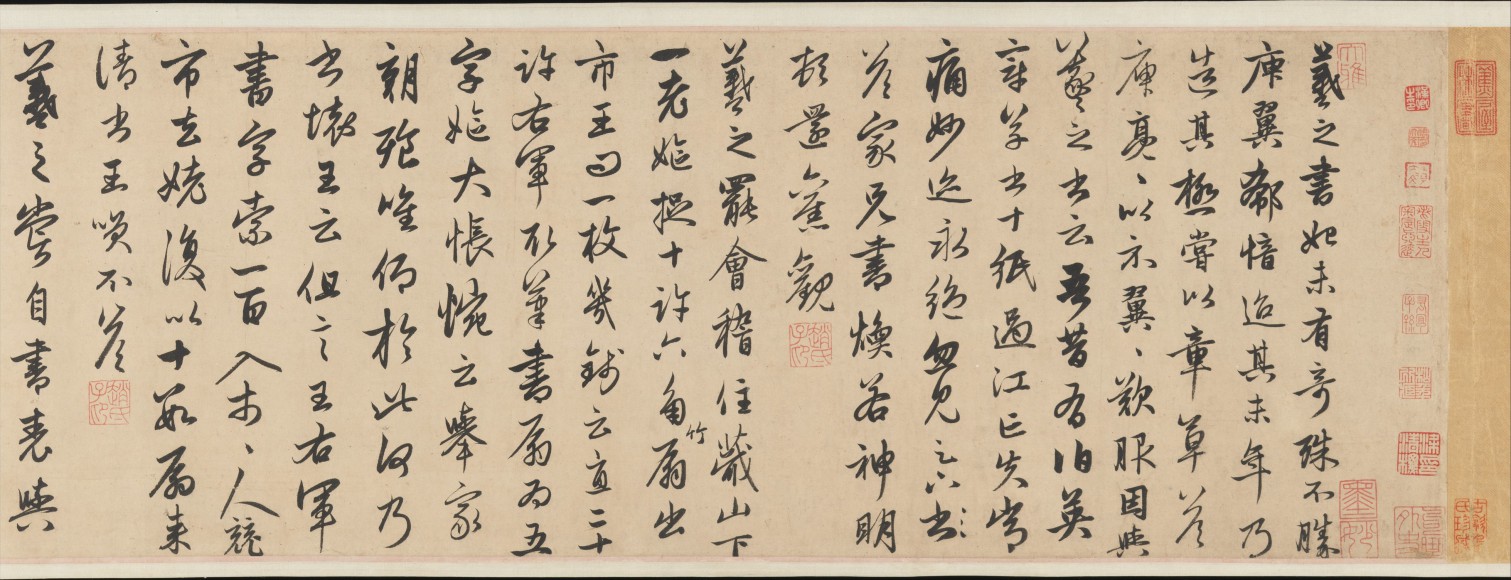 羲之書初未有奇殊不勝
庾翼郗愔迨其末年乃
造其極嘗以章草答
庾亮、以示翼、歎服因與
羲之書云吾昔有伯英
章草書十紙過江亡失常
痛妙迹永絕忽見足下書
答家兄書煥若神明
頓還舊觀
趙氏子昂
羲之罷會稽住蕺山下
一老嫗捉十許六角竹扇出
市王問一枚幾錢云直二十
許右軍取筆書扇為五
字嫗大悵惋云舉家
朝飡唯仰於此何乃
書壞王云但言王右軍
書字索一百入市、人競
市去姥復以十數扇來
請書王笑不答
趙氏子昂
羲之嘗自書表與